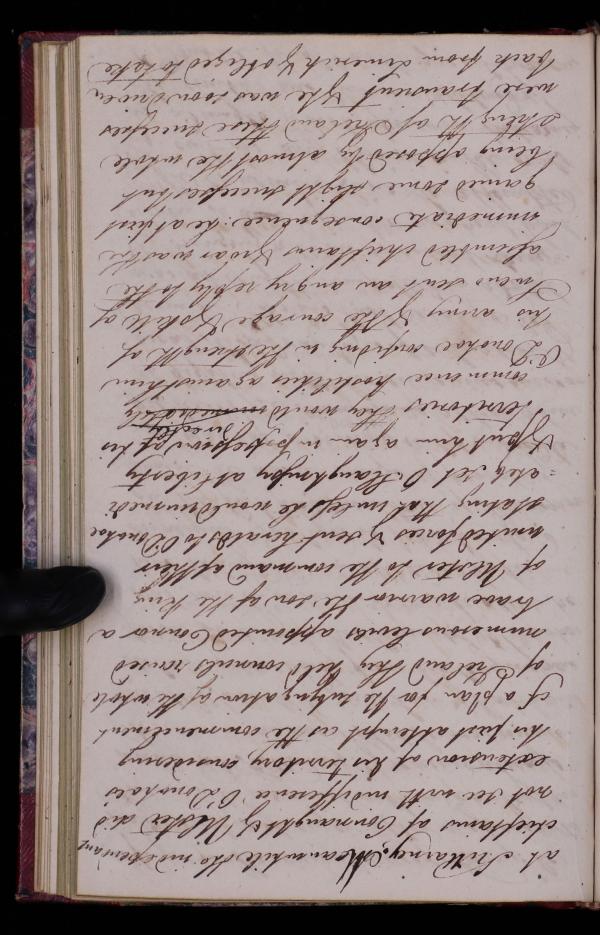 at Killarney. Meanwhile the independant
chieftains of Connaught & Ulster did
not see with indifference O'Donohoes
extension of his territory, considering
his first attempt as the commencement
of a plan for the subjugation of the whole
of Ireland they held councils raised
numerous levies appointed Connor a
brave warrior the son of the King
of Ulster to the command of their
united forces & sent heralds to O'Donohoe
stating that unless he would immedi
=ately set O'Shaughnessy at liberty
& put him again in possession of his
territories they would directly
commence hostilities against him
O'Donohoe confiding in the strength of
his army & the courage & skill of
sent an angry reply to the
assembled chieftains & war was the
immediate consequence: he at first
gained some slight successes but
being opposed by almost the whole
strength of Ireland these successes
were transient & he was soon driven
back from Limerick & obliged to take